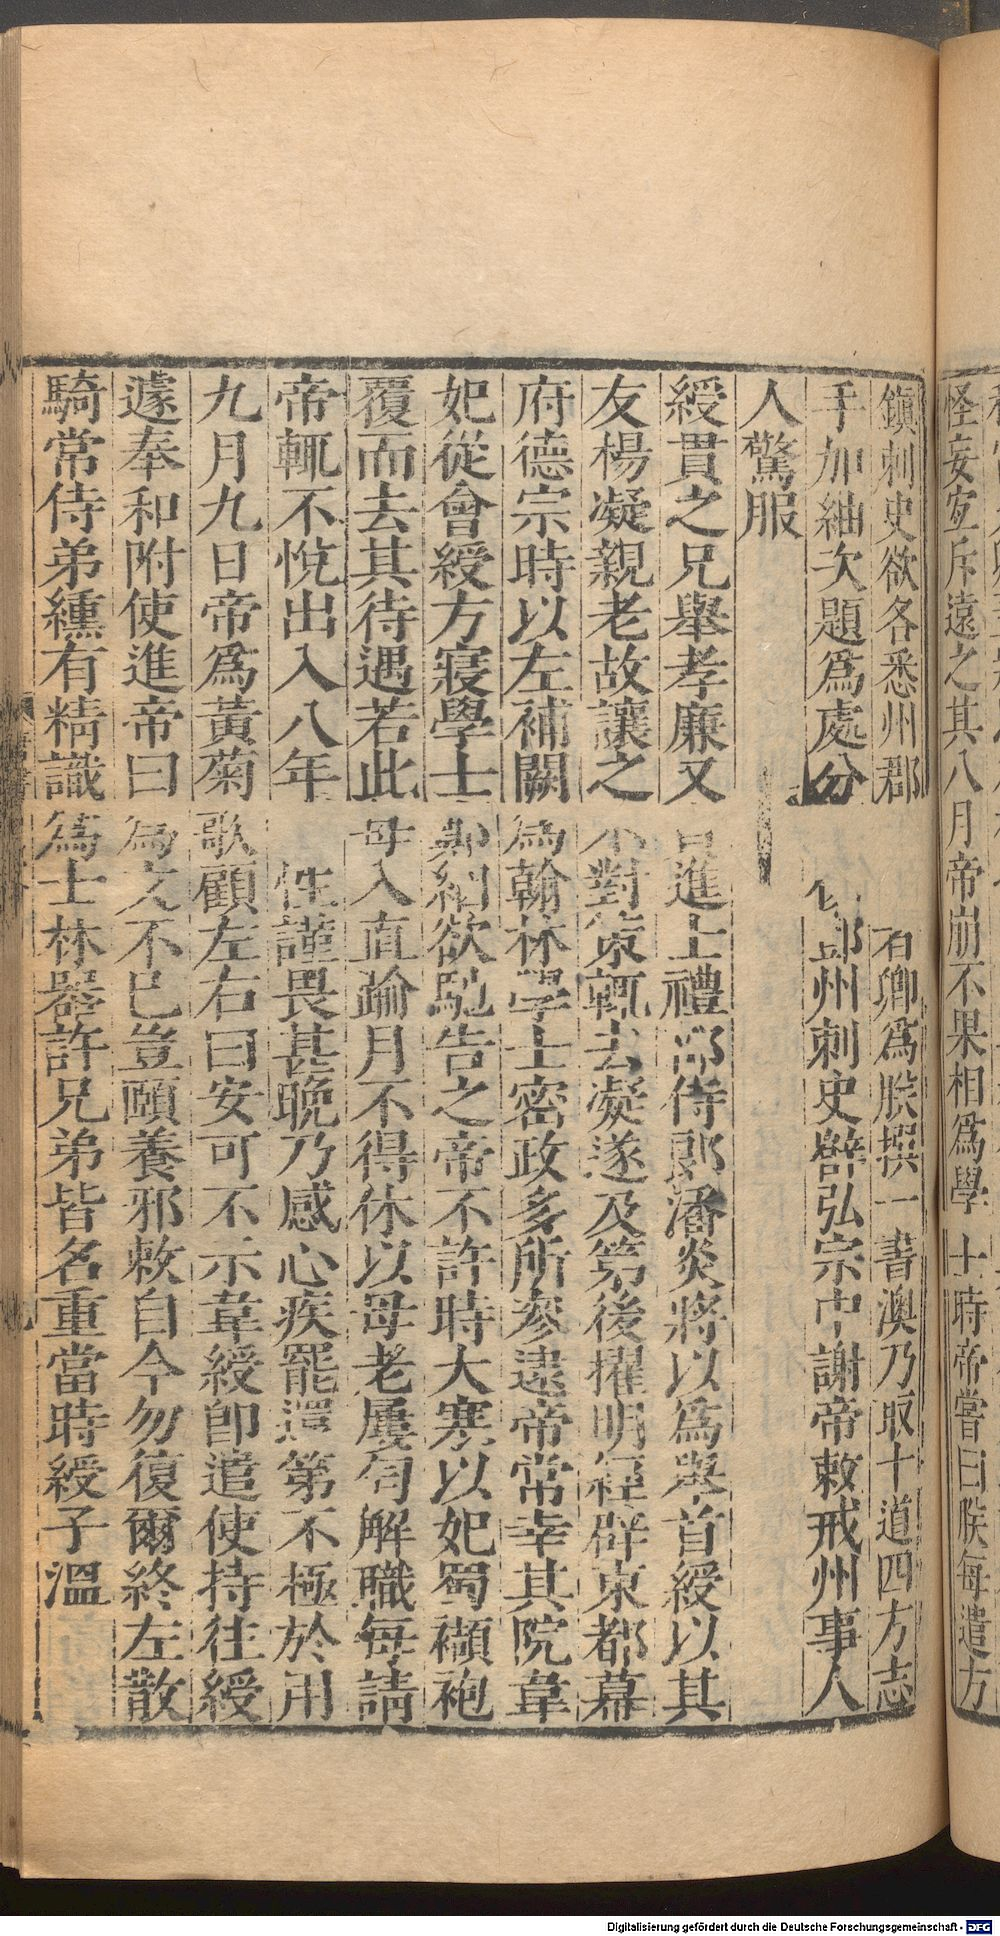 怪妄宜斥遠之其八月帝崩不果相爲學士時帝嘗曰朕每遣方
鎭刺史欲各悉州郡 卿爲朕撰一書澳乃取十道四方志
手加紬次題爲處分 鄧州刺史辭弘宗中謝帝敕戒州事人
人驚服
綬貫之兄舉孝廉又 進士禮部侍郎潘炎將以爲舉首綬以其
友楊凝親老故讓之不對策輒去凝遂及第後擢明經辟東都幕
府德宗時以左補闕爲翰林學士密政多所參逮帝常幸其院韋
妃從會綬方寢學士鄭絪欲馳告之帝不許時大寒以妃蜀襭袍
覆而去其待遇若此 母入直踰月不得休以母老屢匄解職每請
帝輒不悅出入八年 性謹畏甚晚乃感心疾罷還第不極於用
九月九日帝爲黃菊歌顧左右曰安可不示韋綬即遣使持往綬
遽奉和附使進帝曰爲文不已豈頤養邪敕自今勿復爾終左散
騎常侍弟纁有精識爲士林器許兄弟皆名重當時綬子溫
Digitalisierung gefördert durch die Deutsche Forschungsgemeinschaft - DFG